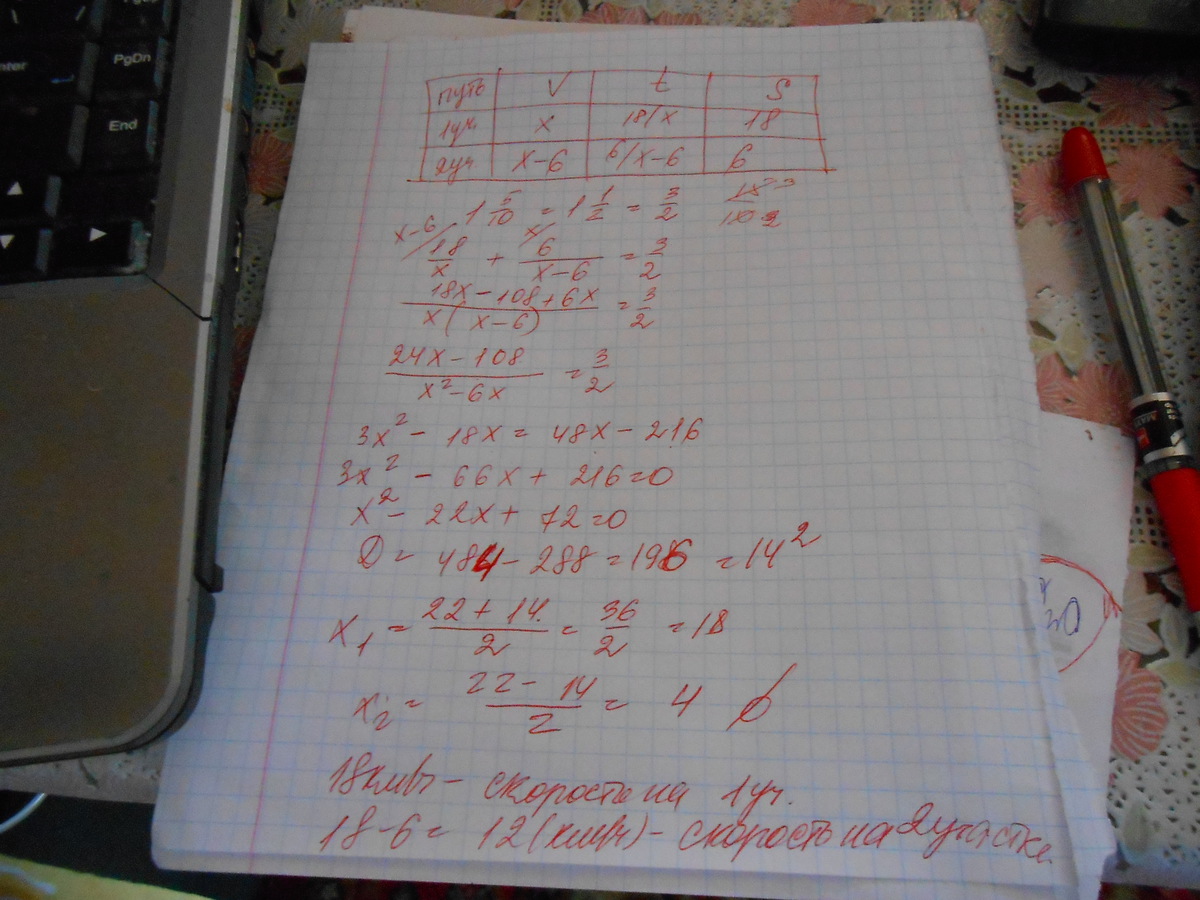 PgDn
End
путь V t S
1уч. x 18/x 18
2уч x-6 6/x-6 6
1 5/10 = 1 1/2 = 3/2
x-6/ 18/x + x/ 6/x-6 = 3/2
18x-108+6x / x(x-6) = 3/2
24x-108 / x²-6x = 3/2
3x² - 18x = 48x - 216
3x² - 66x + 216=0
x² - 22x + 72=0
D = 484 - 288 = 196 = 14²
x₁ = 22 + 14 / 2 = 36/2 = 18
x₂ = 22 - 14 / 2 = 4 ∅
18км/ч - скорость на 1уч.
18-6 = 12 (км/ч) - скорость на 2участке.